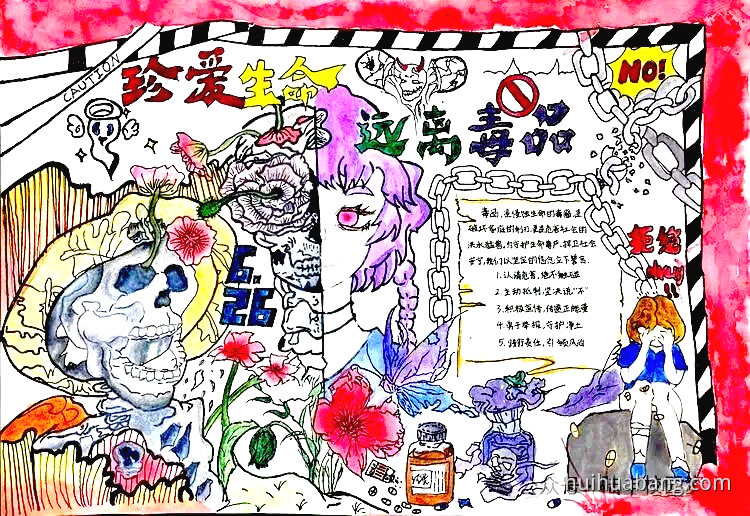 CAUTION
珍爱生命
远离毒品
NO!
6.
26
拒绝
毒品,是侵蚀生命的毒瘤,是
破坏家庭的利刃,更是危害社会的
洪水猛兽,为守护生命尊严,捍卫社会
安宁,我们以坚定的信念立下誓言.
1.认清危害,绝不触碰
2.主动抵制,坚决说“不”
3.积极宣传,传递正能量
4.勇于举报,守护净土
5.践行责任,引领风尚
huihuabang.com